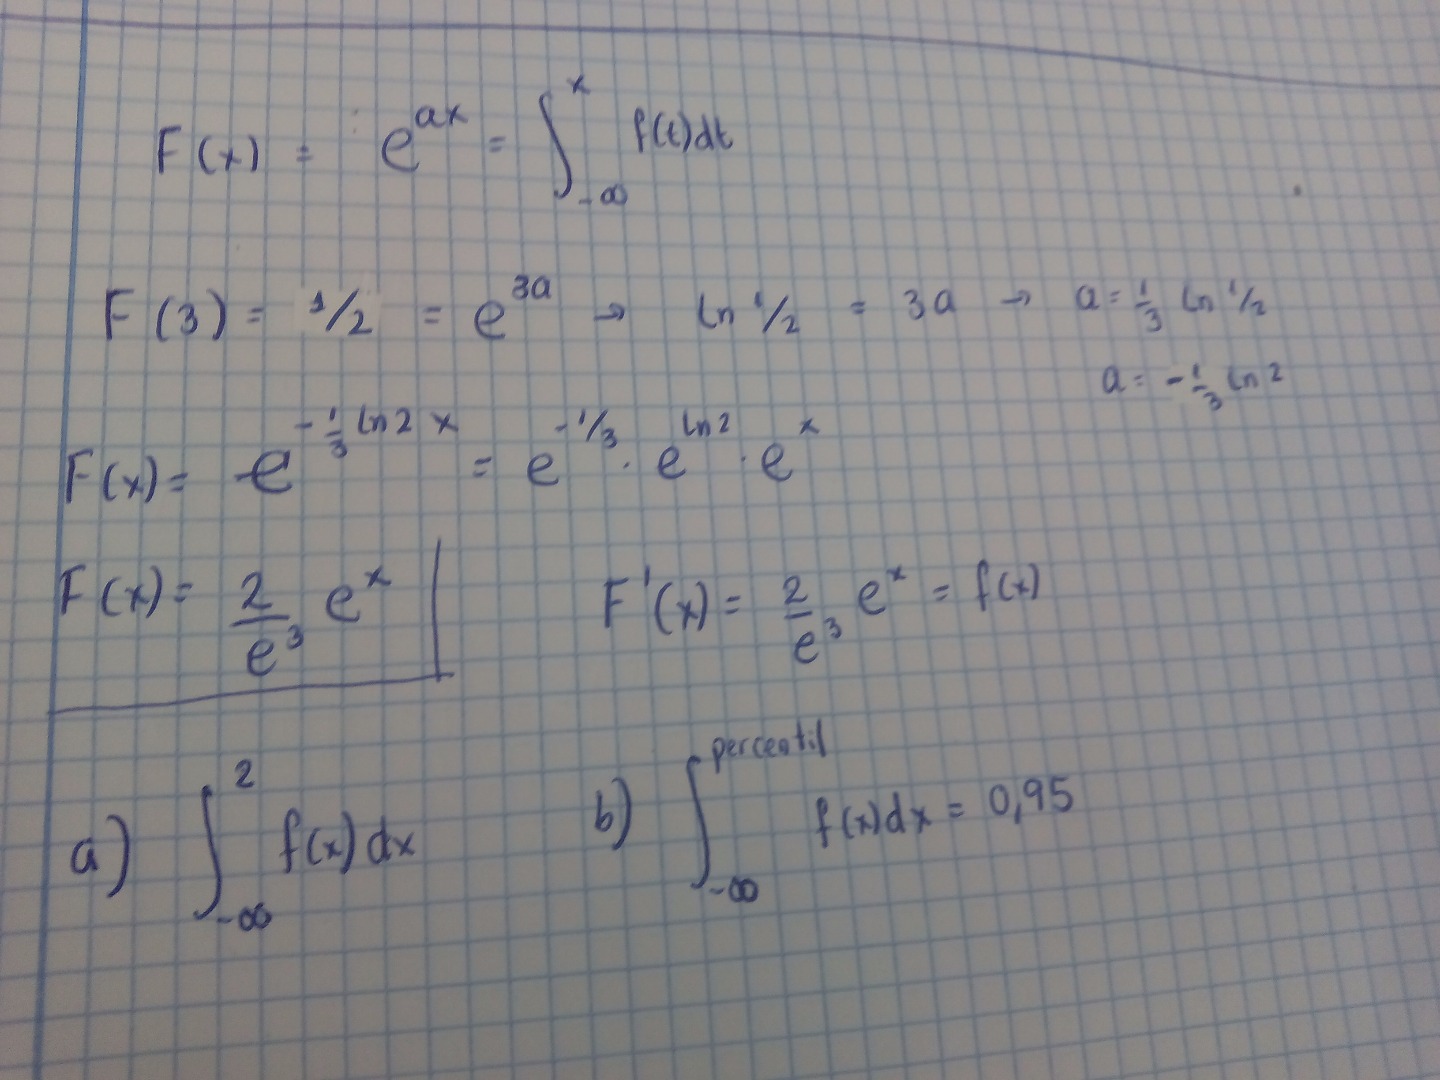 F(x) = e^{ax} = ∫_{-∞}^{x} f(t)dt
F(3) = 1/2 = e^{3a} → ln 1/2 = 3a → a = 1/3 ln 1/2
a = -1/3 ln 2
F(x) = e^{-1/3 ln 2 x} = e^{-1/3} · e^{ln 2} · e^{x}
F(x) = 2/e^3 e^x F'(x) = 2/e^3 e^x = f(x)
a) ∫_{-∞}^{2} f(x) dx b) ∫_{-∞}^{percentil} f(x)dx = 0,95